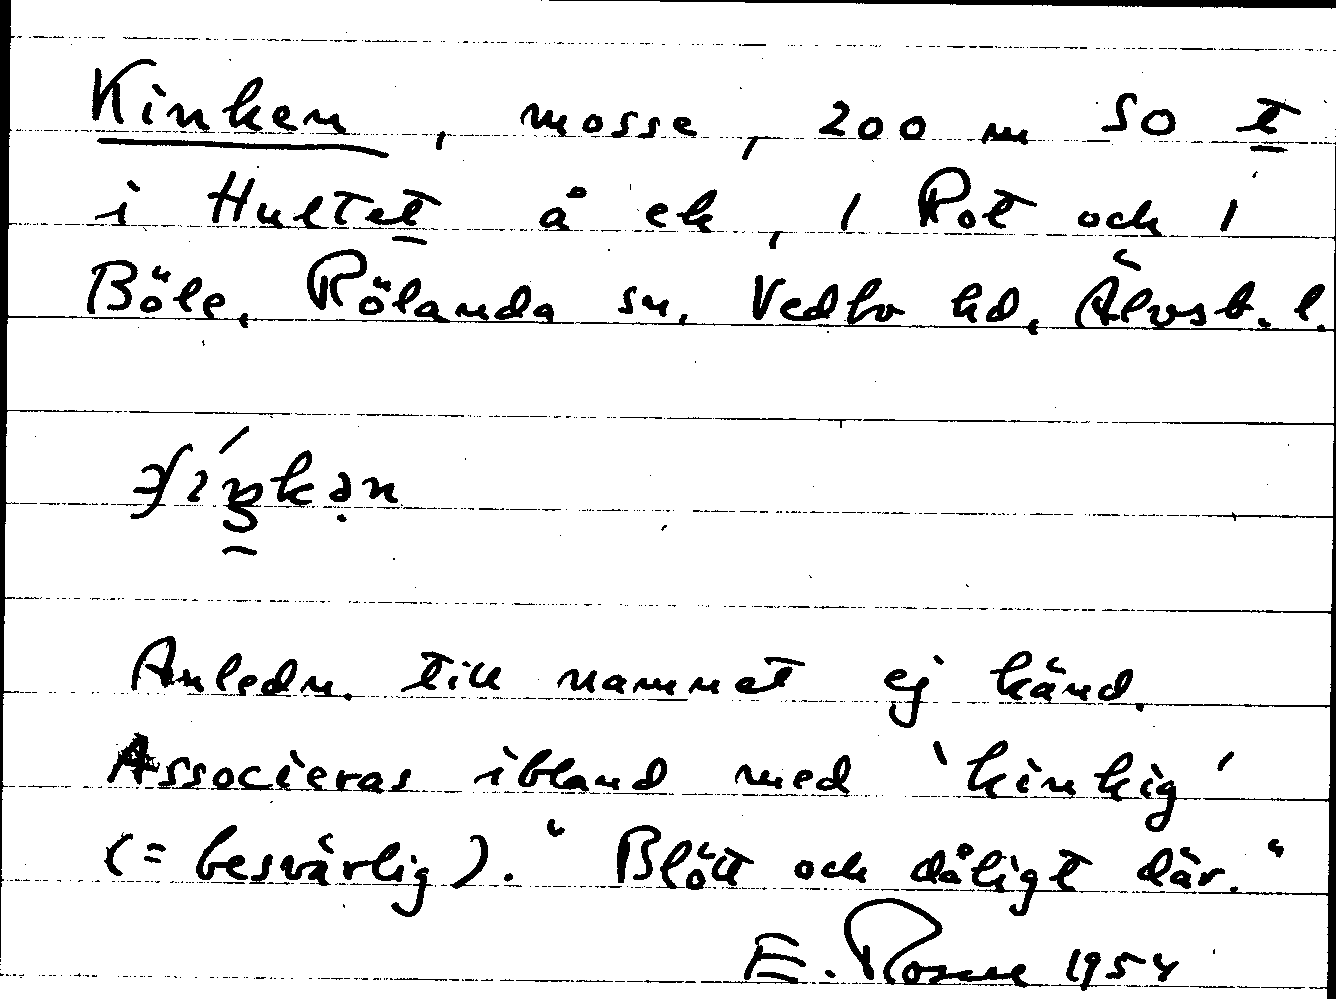 Kinken, mosse, 200 m SO t
i Hultet å ek, 1 Rot och 1
Böle, Rölanda sn, Vedbo hd, Älvsb. l.
Anledn. till namnet ej känd.
Associeras ibland med 'kinkig'
(= besvärlig). "Blött och dåligt där."
E. Rosell 1954